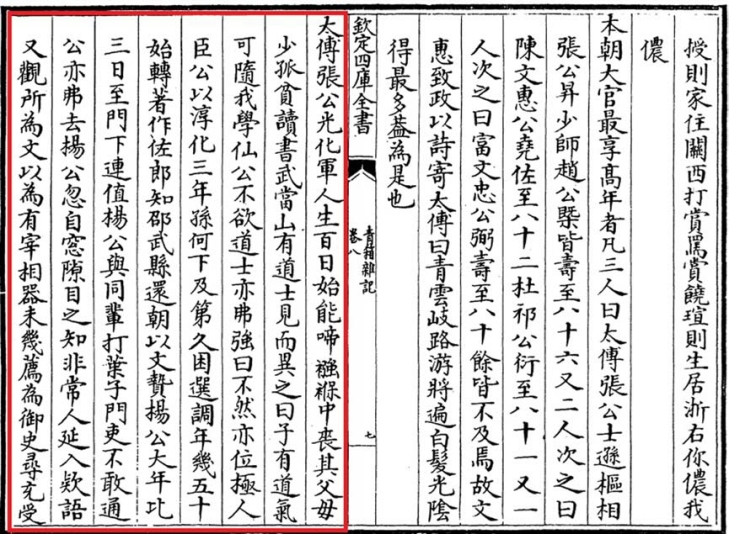 授則家住關西打賞罵賞饒瑄則生居浙右你儂我
儂
本朝大官最享髙年者凡三人曰太傅張公士遜樞相
張公昇少師趙公槩皆壽至八十六又二人次之曰
陳文惠公堯佐至八十二杜祁公衍至八十一又一
人次之曰富文忠公弼壽至八十餘皆不及焉故文
惠致政以詩寄太傅曰青雲岐路游將遍白髮光陰
得最多葢為是也
欽定四庫全書
青箱雜記
卷八
七
太傅張公光化軍人生百日始能啼襁褓中喪其父母
少孤貧讀書武當山有道士見而異之曰子有道氣
可隨我學仙公不欲道士亦弗強曰不然亦位極人
臣公以淳化三年孫何下及第久困選調年幾五十
始轉著作佐郎知邵武縣還朝以文贄楊公大年比
三日至門下連值楊公與同輩打葉子門吏不敢通
公亦弗去楊公忽自窓隙目之知非常人延入欵語
又觀所為文以為有宰相器未幾薦為御史尋充受